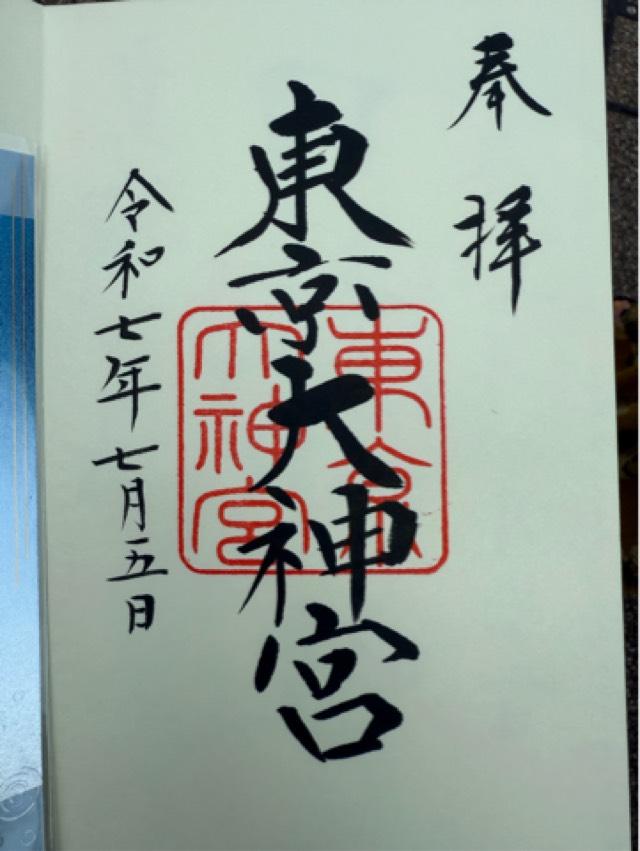 奉拝
東京大神宮
東京大神宮
令和七年七月五日